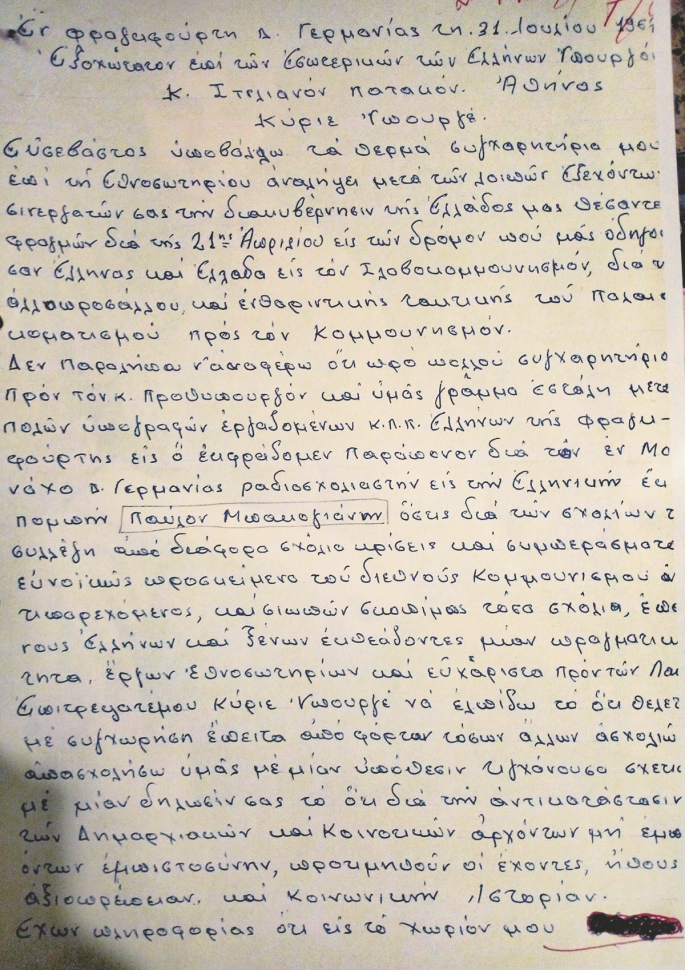 Εν φραγκφούρτη Δ. Γερμανίας τη. 31. Ιουλίου 196
Εξοχώτατον επί τών Εσωτερικών τών Ελλήνων Υπουργό
Κ. Στελιανόν Πατακόν. Αθήνας
Κύριε Υπουργέ.
Εύσεβάστος ύποβάλλω τά θερμά συγχαρητήρια μου
έπί τή Εθνοσωτηρίου άναλήψει μετά τών λοιπών Εξεχόντω
σινεργατών σας τήν διακυβέρνησιν τής Ελλάδος μας θέσαντε
φραγμών διά τής 21ης Απριλίου είς τών δρόμον πού μάς όδηγού
σαν Ελληνας καί Ελλάδα είς τόν Σλοβοκομμουνησμόν, διά τ
άλλοπροσάλλου, καί ένθαριντικής τακτικής τού Παλαι
κοματισμού πρός τόν Κομμουνησμόν.
Δεν Παραλήπω ν'αναφέρω ότι πρό πολλού συγχαρητήριο
Πρόν τόν κ. Προθυπουργόν καί ύμάς γράμμα έστάλη μετά
Πολών ύπογραφών έργαδομένων κ.π.π. Ελλήνων τής Φραγκ-
φούρτης είς ό έκφράδομεν Παράπονον διά τόν έν Μο
νάχο Δ. Γερμανίας ραδιοσχολιαστήν είς τήν Ελληνικήν έκ
πομπήν Παύλον Μπακογιάννη όστις διά τών σχολίων τ
συλλέξη άπό διάφορα σχόλια κρίσεις καί συμπεράσματα
εύνοϊκώς προσκείμενα τού διεθνούς Κομμουνισμού ά
τιπαρεχόμενος, καί σιωπών σκοπίμως τόσα σχόλια, έπε
νους Ελλήνων καί ξένων έκθεάδοντες μίαν πραγματικ
τητα, έργων Εθνοσωτηρίων καί εύχάριστα Πρόν τών Λαι
Επιτρεψατέμου Κύριε Υπουργέ νά έλπίδω τό ότι θελετ
μέ συγχωρήση έπειτα άπό φόρτον τόσων άλλων άσχολιώ
άπασχολήσω ύμάς μέ μίαν ύπόθεσιν τιγχάνουσα σχετικ
μέ μίαν δηλωσίν σας τό ότι διά τήν άντικατάστασιν
τών Δημαρχιακών καί Κοινοτικών άρχόντων μή έμπν
όντων έμπιστοσύνην, προτιμηθούν οί έχοντες, ήθους
άξιοπρέπειαν. καί Κοινωνικήν Ιστορίαν.
Εχων πληροφορίας ότι είς τό χωριόν μου